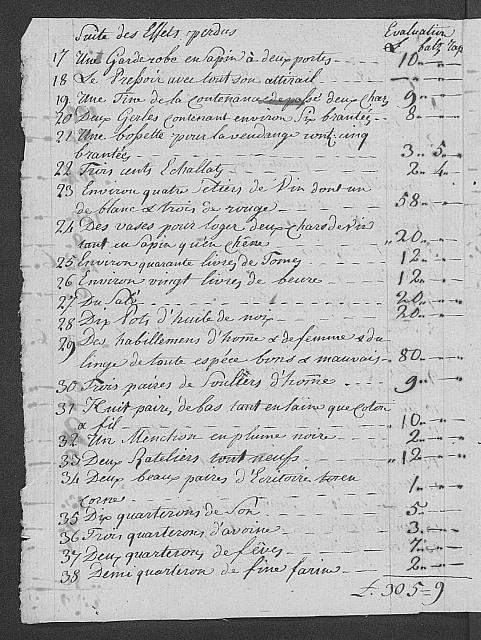 Suite des Effets perdus Evaluation
£ batz rap
17 Une Garderobe en sapin à deux portes 10
18 Le Presoir avec tout son attirail
19 Une Tine de la contenance deux Chars 9
20 Deux Gerles contenant environ Six brantées 8
21 Une bossette pour la vendange cinq
brantées 3 5
22 Trois cents Echallats 2 4
23 Environ quatre setiers de Vin dont un
de blanc & trois de rouge 58
24 Des vases pour loger deux Chars de Vin
tant en Sapin qu'en chêne 20
25 Environ quarante livres de Tome 12
26 Environ vingt livres de beure 12
27 Du Salé 20
28 Dix Pots d'huile de noix 20
29 Des habillemens d'home & de femme & du
linge de toute espèce bons & mauvais 80
30 Trois paires de Soulliers d'home 9
31 Huit paire, de bas tant en laine que Coton
& fil 10
32 Un Menchon en plume noire 2
33 Deux Rateliers tout neufs 12
34 Deux beaux paires d'Ecritoire en
corne 1
35 Dix quarterons de Son 5
36 Trois quarterons d'avoine 3
37 Deux quarterons de fêves 7
38 Demi quarteron de fine farine 2
£. 305=9